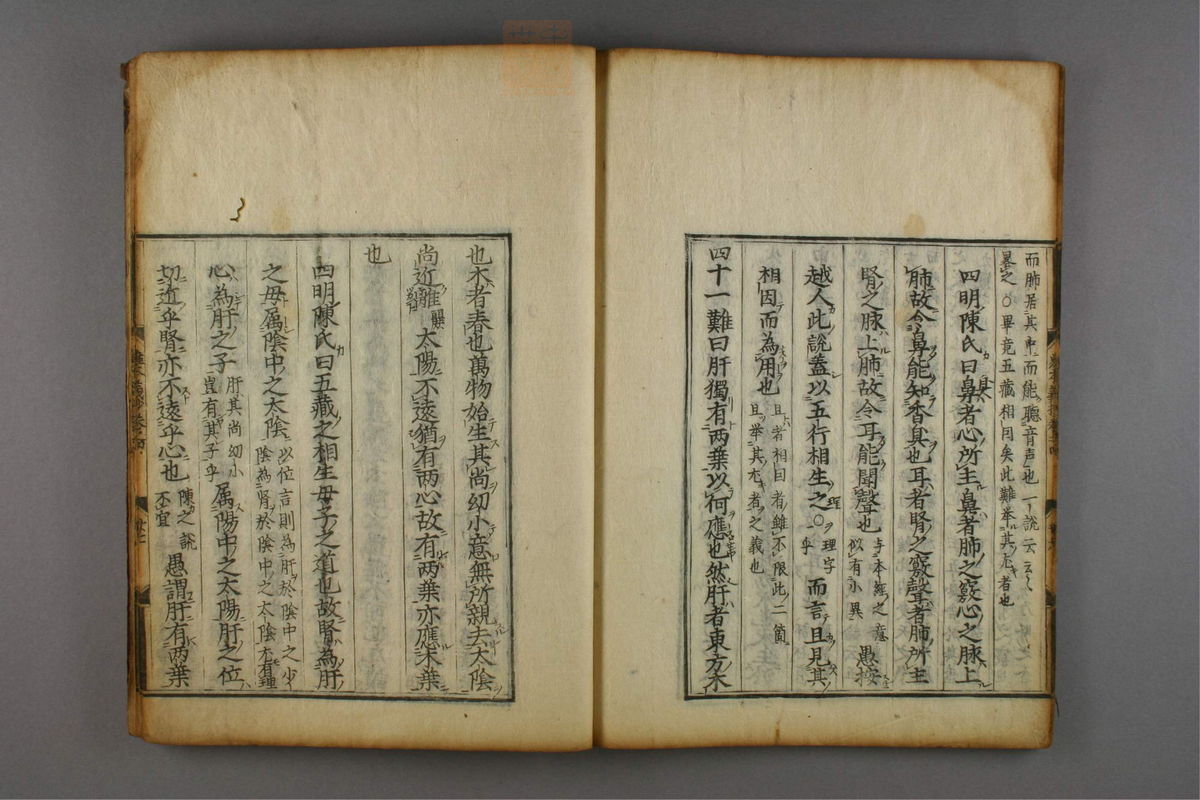 而肺居其中而能聽音声也一說云云
畧之〇畢竟五藏相因矣此難举其尤者也
四明陳氏曰鼻者心所主鼻者肺之竅心之脉上
肺故令鼻能知香臭也耳者腎之竅聲者肺所主
腎之脉上肺故令耳能聞聲也与本經之意似有小異愚按
越人此說蓋以五行相生之〇理字乎而言且見其
相因而為用也且者相因者雖不限此二箇且举其尤者之義也
四十一難曰肝獨有两葉以何應也然肝者東方木
也木者春也萬物始生其尚幼小意無所親去太陰
尚近離太陽不遠猶有两心故有两葉亦應木葉
也
四明陳氏曰五藏之相生母子之道也故腎為肝
之母属陰中之太陰以位言則為肝於陰中之少陰為腎於陰中之太陰
心為肝之子肝其尚幼小豈有其子乎属陽中之太陽肝之位
切近乎腎亦不遠乎心也陳之說不宜愚謂肝有两葉